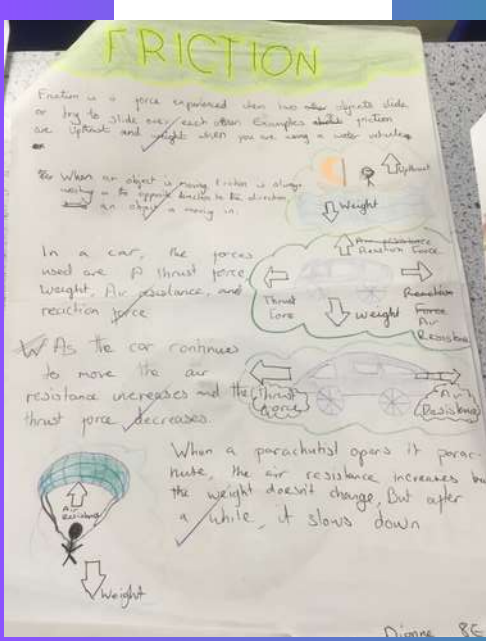 FRICTION
Friction is a force experienced when two objects slide
or try to slide over each other. Examples friction
are Upthrust and weight when you are using a water
When an object is moving friction is always
working in the opposite direction to the direction
an object is moving in.
Upthrust
Weight
In a car, the forces
used are thrust force
Weight, Air resistance, and
reaction force
Air resistance
Reaction Force
Thrust
Force
weight
Reaction
Force
Air
Resistance
As the car continues
to move the air
resistance increases and the
thrust force decreases.
Thrust
force
Air
Resistance
When a parachutist opens it parac-
hute, the air resistance increases but
the weight doesn't change, But after
a while, it slows down
Air
resistance
Weight
Dionne 8G